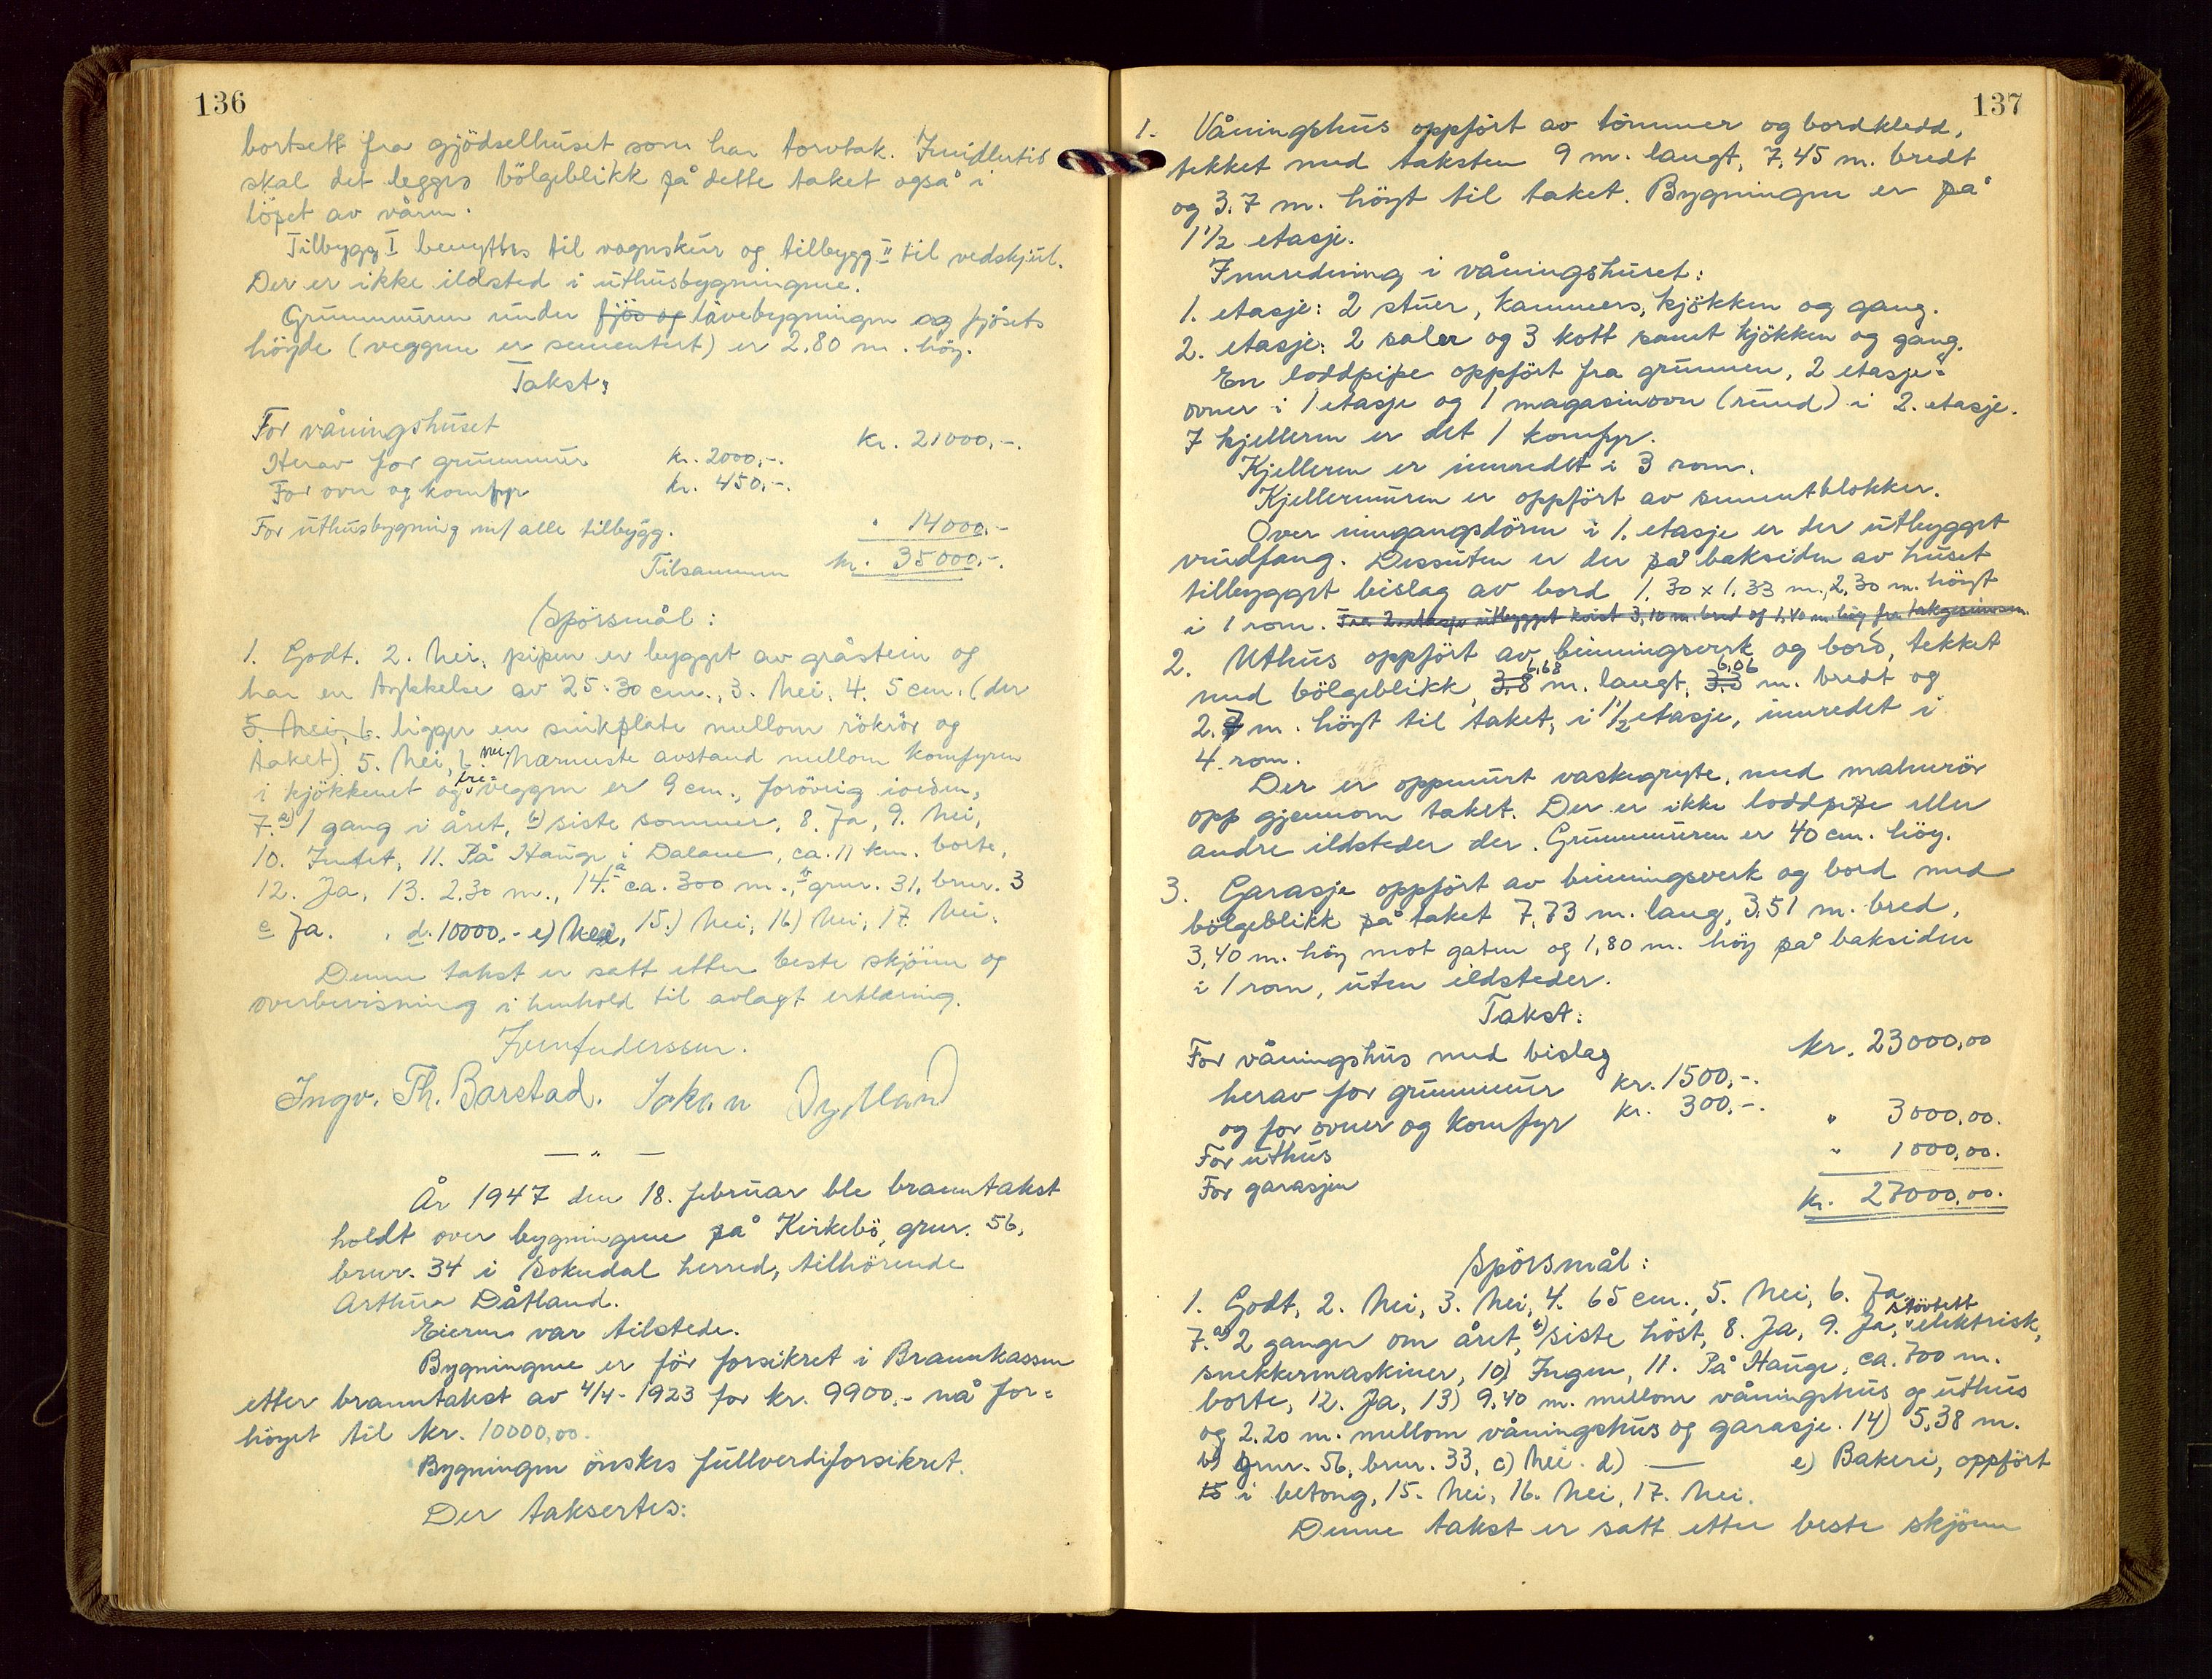 136
bortsett fra gjödselhuset som har torvtak. Imidlertid
skal det legges bölgeblikk på dette taket også i
löpet av våren.
Tilbygg I benyttes til vognskur og tilbygg II til vedskjul.
Der er ikke ildsted i uthusbygningene.
Grunnmuren under fjös og låvebygningen og fjösets
höyde (veggene er sementert) er 2.80 m. höy.
Takst:
For våningshuset kr. 21000,-.
Herav for grunnmur kr. 2000,-.
For ovn og komfyr kr. 450,-.
For uthusbygning m/ alle tilbygg. " 14000,-
Tilsammen kr. 35000,-.
Spörsmål:
1. Godt. 2. Nei, pipen er bygget av gråstein og
har en tykkelse av 25-30 cm., 3. Nei, 4. 5 cm. (der
5. Nei, 6. ligger en sinkplate mellom rökrör og
taket) 5. Nei, 6. nei. Nærmeste avstand mellom komfyren
i kjökkenet og tre-veggen er 9 cm., forövrig iorden,
7. a) 1 gang i året, b) siste sommer, 8. Ja, 9. Nei,
10. Intet, 11. På Hauge i Dalane, ca. 11 km. borte,
12. Ja, 13. 2.30 m., 14. a ca. 300 m., b grnr. 31, brnr. 3
c Ja. , d. 10000,- e) Nei, 15.) Nei, 16) Nei, 17. Nei.
Denne takst er satt etter beste skjönn og
overbevisning i henhold til avlagt erklæring.
Ingv. Th. Barstad. Johan Dydland
— " —
År 1947 den 18. februar ble branntakst
holdt over bygningene på Kirkebö, grnr. 56,
brnr. 34 i Sokndal herred, tilhörende
Arthur Dåtland.
Eieren var tilstede.
Bygningene er för forsikret i Brannkassen
etter branntakst av 4/4-1923 for kr. 9900,- nå for=
höyet til kr. 10000,00.
Bygningen önskes fullverdiforsikret.
Der taksertes:
137
1. Våningshus oppfört av tömmer og bordkledd,
tekket med taksten 9 m. langt, 7,45 m. bredt
og 3.7 m. höyt til taket. Bygningen er på
1 1/2 etasje.
Innredning i våningshuset:
1. etasje: 2 stuer, kammers, kjökken og gang.
2. etasje: 2 saler og 3 kott samt kjökken og gang.
En loddpipe oppfört fra grunnen, 2 etasje=
ovner i 1 etasje og 1 magasinovn (rund) i 2. etasje.
I kjelleren er det 1 komfyr.
Kjelleren er innredet i 3 rom.
Kjellermuren er oppfört av sementblokker.
Over inngangsdören i 1. etasje er der utbygget
vindfang. Dessuten er der på baksiden av huset
tilbygget bislag av bord 1.30 x 1.33 m., 2,30 m. höyt
i 1 rom. Fra 2. etasje utbygget kvist 3,10 m. bred og 1,40 m. höy fra takgesimsen.
2. Uthus oppfört av binningsverk og bord, tekket
med bölgeblikk, 3.8 6,68 m. langt, 3.3 6,06 m. bredt og
2.7 m. höyt til taket, i 1 1/2 etasje, innredet i
4 rom.
Der er oppmurt vaskegryte, med malmrör
opp gjennom taket. Der er ikke loddpipe eller
andre ildsteder der. Grunnmuren er 40 cm. höy.
3. Garasje oppfört av binningsverk og bord med
bölgeblikk på taket 7,73 m. lang, 3,51 m. bred,
3,40 m. höy mot gaten og 1,80 m. höy på baksiden
i 1 rom, uten ildsteder.
Takst:
For våningshus med bislag kr. 23000,00
herav for grunnmur kr. 1500,-.
og for ovner og komfyr kr. 300,-.
For uthus " 3000,00.
For garasjen " 1000,00.
kr. 27000,00.
Spörsmål:
1. Godt, 2. Nei, 3. Nei, 4. 65 cm., 5. Nei, 6. Ja,
7. a) 2 ganger om året, b) siste höst, 8. Ja, 9. Ja, stövtett elektrisk,
snekkermaskiner, 10) Ingen, 11. På Hauge, ca. 700 m.
borte, 12. Ja, 13) 9,40 m. mellom våningshus og uthus
og 2.20 m. mellom våningshus og garasje. 14) 5,38 m.
b) grnr. 56, brnr. 33, c) Nei. d) — e) Bakeri, oppfört
15 i betong, 15. Nei, 16. Nei, 17. Nei.
Denne takst er satt etter beste skjönn